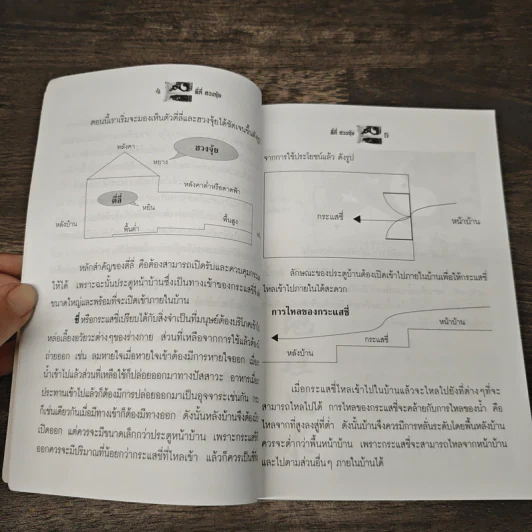 4 ตี่ลี่ ฮวงจุ้ย
ตอนนี้เราเริ่มจะมองเห็นตัวตี่ลี่และฮวงจุ้ยได้ชัดเจนขึ้น
หลังคา
ฮวงจุ้ย
หยาง
หลังคาต่ำหรือดาดฟ้า
ตี่ลี่
หยิน
พื้นสูง
หลังบ้าน
พื้นต่ำ
หลักสำคัญของตี่ลี่ คือต้องสามารถเปิดรับและควบคุมกระแส
ให้ได้ เพราะฉะนั้นประตูหน้าบ้านซึ่งเป็นทางเข้าของกระแสชี่
ขนาดใหญ่และพร้อมที่จะเปิดเข้าภายในบ้าน
ชี่ หรือกระแสชี่เปรียบได้กับสิ่งจำเป็นที่มนุษย์ต้องบริโภค
หล่อเลี้ยงอวัยวะต่างๆของร่างกาย ส่วนที่เหลือจากการใช้แล้วต้อง
ถ่ายออก เช่น ลมหายใจเมื่อหายใจเข้าต้องมีการหายใจออก
น้ำเข้าไปแล้วส่วนที่เหลือใช้ก็ปล่อยออกมาทางปัสสาวะ อาหารเมื่อ
ประทานเข้าไปแล้วก็ต้องมีการปล่อยออกมาเป็นอุจจาระเช่นกัน
ก็เช่นเดียวกันเมื่อมีทางเข้าก็ต้องมีทางออก ดังนั้นหลังบ้านจึงต้อง
เปิดออก แต่ควรจะมีขนาดเล็กกว่าประตูหน้าบ้าน เพราะกระแสชี่
ออกควรจะมีปริมาณที่น้อยกว่ากระแสชี่ที่ไหลเข้า แล้วก็ควรเป็นชี่
ตี่ลี่ ฮวงจุ้ย 5
จากการใช้ประโยชน์แล้ว ดังรูป
กระแสชี่
หน้าบ้าน
ลักษณะของประตูบ้านต้องเปิดเข้าไปภายในบ้านเพื่อให้กระแสชี่
ไหลเข้าไปภายในได้สะดวก
การไหลของกระแสชี่
หน้าบ้าน
กระแสชี่
หลังบ้าน
เมื่อกระแสชี่ไหลเข้าไปในบ้านแล้วจะไหลไปยังที่ต่างๆที่จะ
สามารถไหลไปได้ การไหลของกระแสชี่จะคล้ายกับการไหลของน้ำ คือ
ไหลจากที่สูงลงสู่ที่ต่ำ ดังนั้นบ้านจึงควรมีการหลั่นระดับโดยพื้นหลังบ้าน
ควรจะต่ำกว่าพื้นหน้าบ้าน เพราะกระแสชี่จะสามารถไหลจากหน้าบ้าน
และไปตามส่วนอื่นๆ ภายในบ้านได้